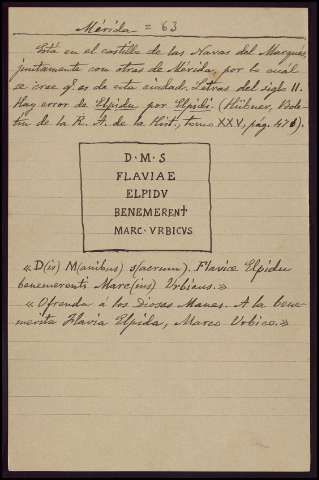 Mérida = 63
Está en el castillo de las Navas del Marqués
juntamente con otras de Mérida, por lo cuál
se cree q. es de esta ciudad. Letras del siglo II.
Hay error de Elpidu por Elpidi. (Hübner, Bole-
tín de la R. A. de la Hist., tomo XXV, pág. 476).
D · M · S
FLAVIAE
ELPIDV
BENEMERENT
MARC · VRBICVS
« D(is) M(anibus) s(acrum). Flaviæ Elpidu
benemerenti Marc(ius) Urbicus. »
« Ofrenda á los Diosas Manes. A la bene-
merita Flavia Elpida, Marco Urbico. »